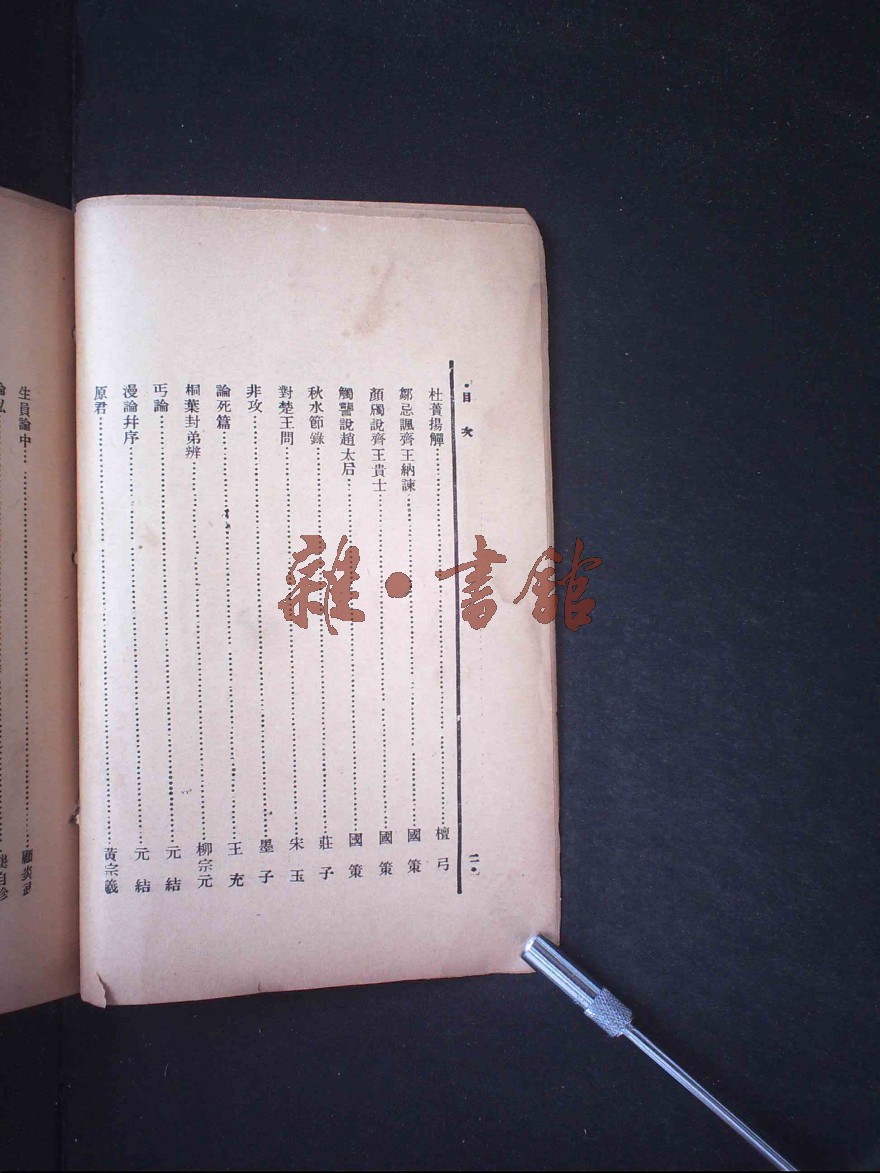 目次
二
杜蕢揚觶……檀弓
鄒忌諷齊王納諫……國策
顏斶說齊王貴士……國策
觸讋說趙太后……國策
秋水節錄……莊子
對楚王問……宋玉
非攻……墨子
論死篇……王充
桐葉封弟辨……柳宗元
丐論……元結
漫論幷序……元結
原君……黃宗羲
生員論中……顧炎武
龔自珍
雜·書館